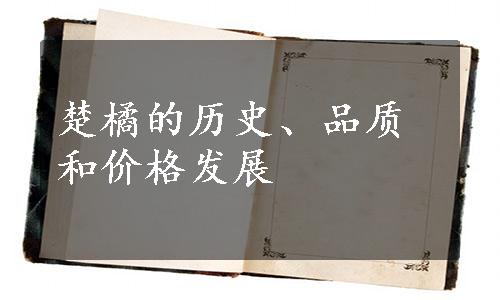 楚橘的历史、品质
和价格发展